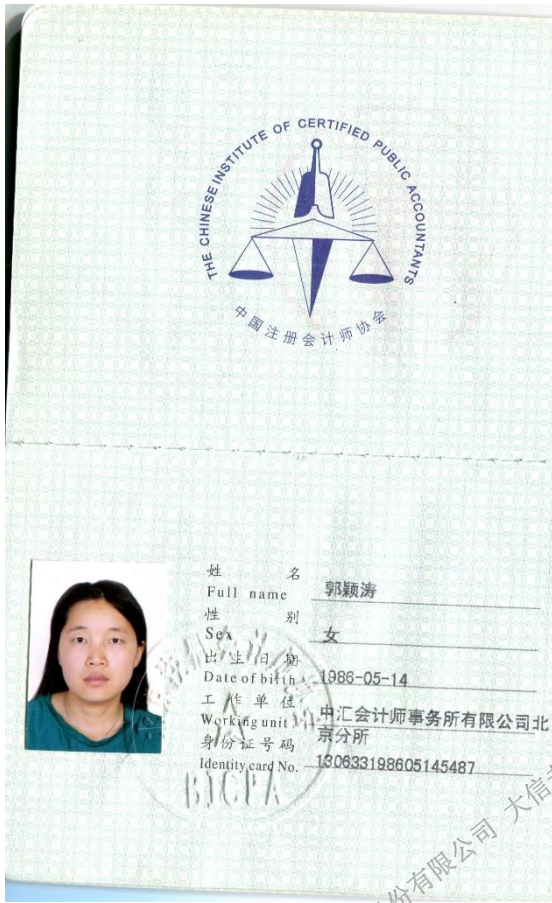 THE CHINESE INSTITUTE OF CERTIFIED PUBLIC ACCOUNTANTS
中国注册会计师协会
姓 名
Full name 郭颖涛
性 别
Sex 女
出生日期
Date of birth 1986-05-14
工作单位
Working unit 中汇会计师事务所有限公司北
京分所
身份证号码
Identity card No. 130633198605145487
BICPA
份有限公司 大信